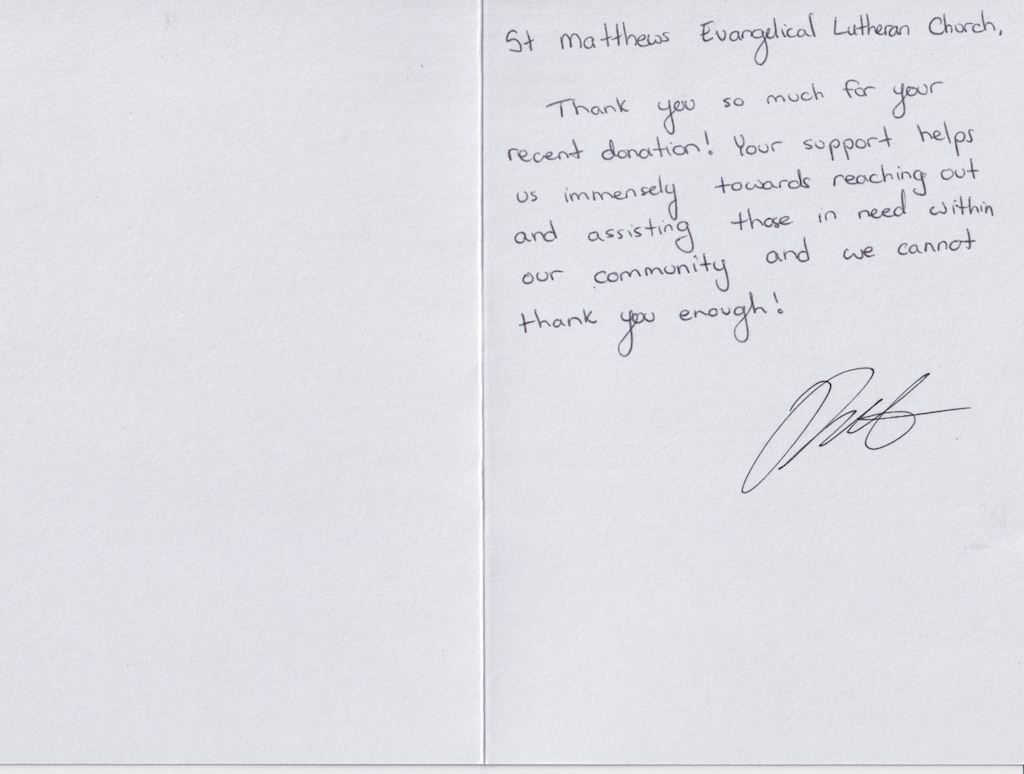 St Matthews Evangelical Lutheran Church,
Thank you so much for your
recent donation! Your support helps
us immensely towards reaching out
and assisting those in need within
our community and we cannot
thank you enough!